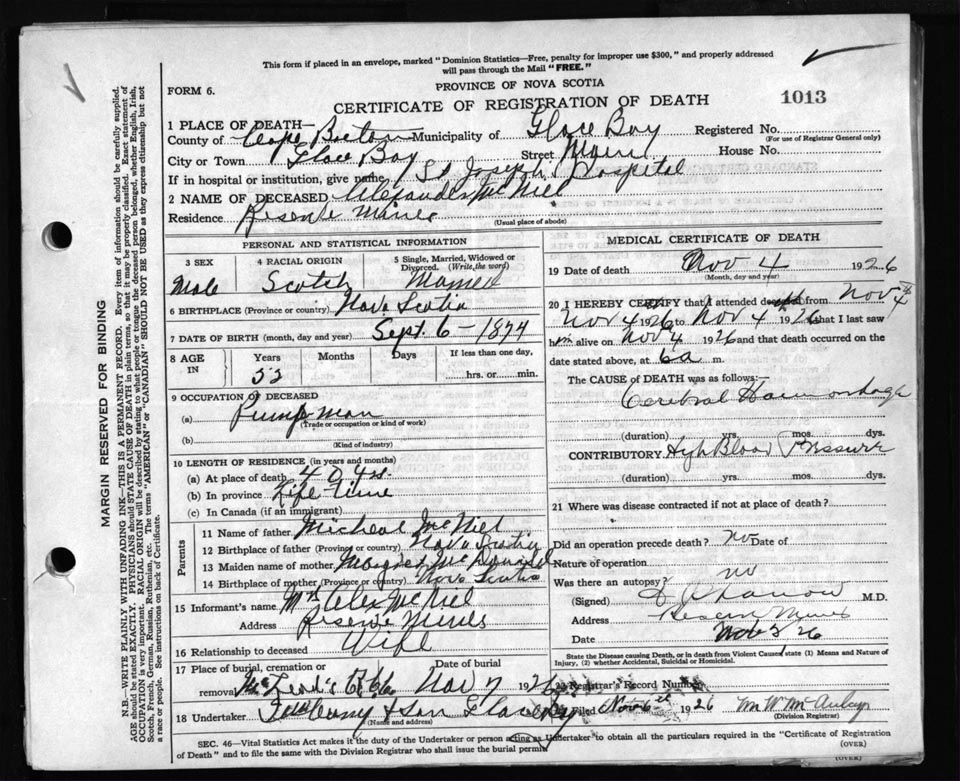 This form if placed in an envelope, marked "Dominion Statistics—Free, penalty for improper use $300," and properly addressed
will pass through the Mail "FREE."
FORM 6.
PROVINCE OF NOVA SCOTIA
CERTIFICATE OF REGISTRATION OF DEATH
1013
1 PLACE OF DEATH—
County of Cape Breton Municipality of Glace Bay Registered No.
(For use of Registrar General only)
City or Town Glace Bay Street Main House No.
If in hospital or institution, give name St Joseph's Hospital
2 NAME OF DECEASED Alexander McNiel
Residence Reserve Mines
(Usual place of abode)
PERSONAL AND STATISTICAL INFORMATION
3 SEX
4 RACIAL ORIGIN
5 Single, Married, Widowed or
Divorced. (Write the word)
Male Scotch Married
6 BIRTHPLACE (Province or country) Nova Scotia
7 DATE OF BIRTH (month, day and year) Sept. 6 - 1874
8 AGE IN
Years Months Days If less than one day,
52
hrs. or min.
9 OCCUPATION OF DECEASED
(a) Pump-man
(Trade or occupation or kind of work)
(b)
(Kind of industry)
10 LENGTH OF RESIDENCE (in years and months)
(a) At place of death 40 yrs.
(b) In province Life-time
(c) In Canada (if an immigrant)
Parents
11 Name of father Micheal McNiel
12 Birthplace of father (Province or country) Nova Scotia
13 Maiden name of mother McDonald
14 Birthplace of mother (Province or Country) Nova Scotia
15 Informant's name Mrs Alex McNiel
Address Reserve Mines
16 Relationship to deceased Wife
17 Place of burial, cremation or
removal Date of burial Nov 7 1926
18 Undertaker & Son Glace Bay
(Name and address)
MEDICAL CERTIFICATE OF DEATH
19 Date of death Nov 4 1926
(Month, day and year)
20 I HEREBY CERTIFY that I attended deceased from Nov 4th
Nov 4 1926 to Nov 4 1926 that I last saw
him alive on Nov 4 1926 and that death occurred on the
date stated above, at 6 a m.
The CAUSE of DEATH was as follows:
Cerebral Haemorrhage
(duration) yrs. mos. dys.
CONTRIBUTORY High Blood Pressure
(duration) yrs. mos. dys.
21 Where was disease contracted if not at place of death?
Did an operation precede death? no Date of
Nature of operation
Was there an autopsy? no
(Signed) M.D.
Address Reserve Mines
Date 26
State the Disease causing Death, or in death from Violent Causes, state (1) Means and Nature of
Injury, (2) whether Accidental, Suicidal or Homicidal.
22 Registrar's Record Number
Filed Nov 6th 1926
(Division Registrar)
SEC. 46—Vital Statistics Act makes it the duty of the Undertaker or person acting as Undertaker to obtain all the particulars required in the "Certificate of Registration
of Death" and to file the same with the Division Registrar who shall issue the burial permit.
(OVER)
(OVER)
MARGIN RESERVED FOR BINDING
N.B.—WRITE PLAINLY WITH UNFADING INK—THIS IS A PERMANENT RECORD. Every item of information should be carefully supplied.
AGE should be stated EXACTLY. PHYSICIANS should STATE CAUSE OF DEATH in plain terms, so that it may be properly classified. Exact statement of
OCCUPATION is very important. RACIAL ORIGIN will be described by stating to what people or tongue the deceased person belonged, whether English, Irish,
Scotch, French, German, Russian, Ruthenian, etc. The terms "AMERICAN" or "CANADIAN" SHOULD NOT BE USED as they express citizenship but not
a race or people. See instructions on back of Certificate.